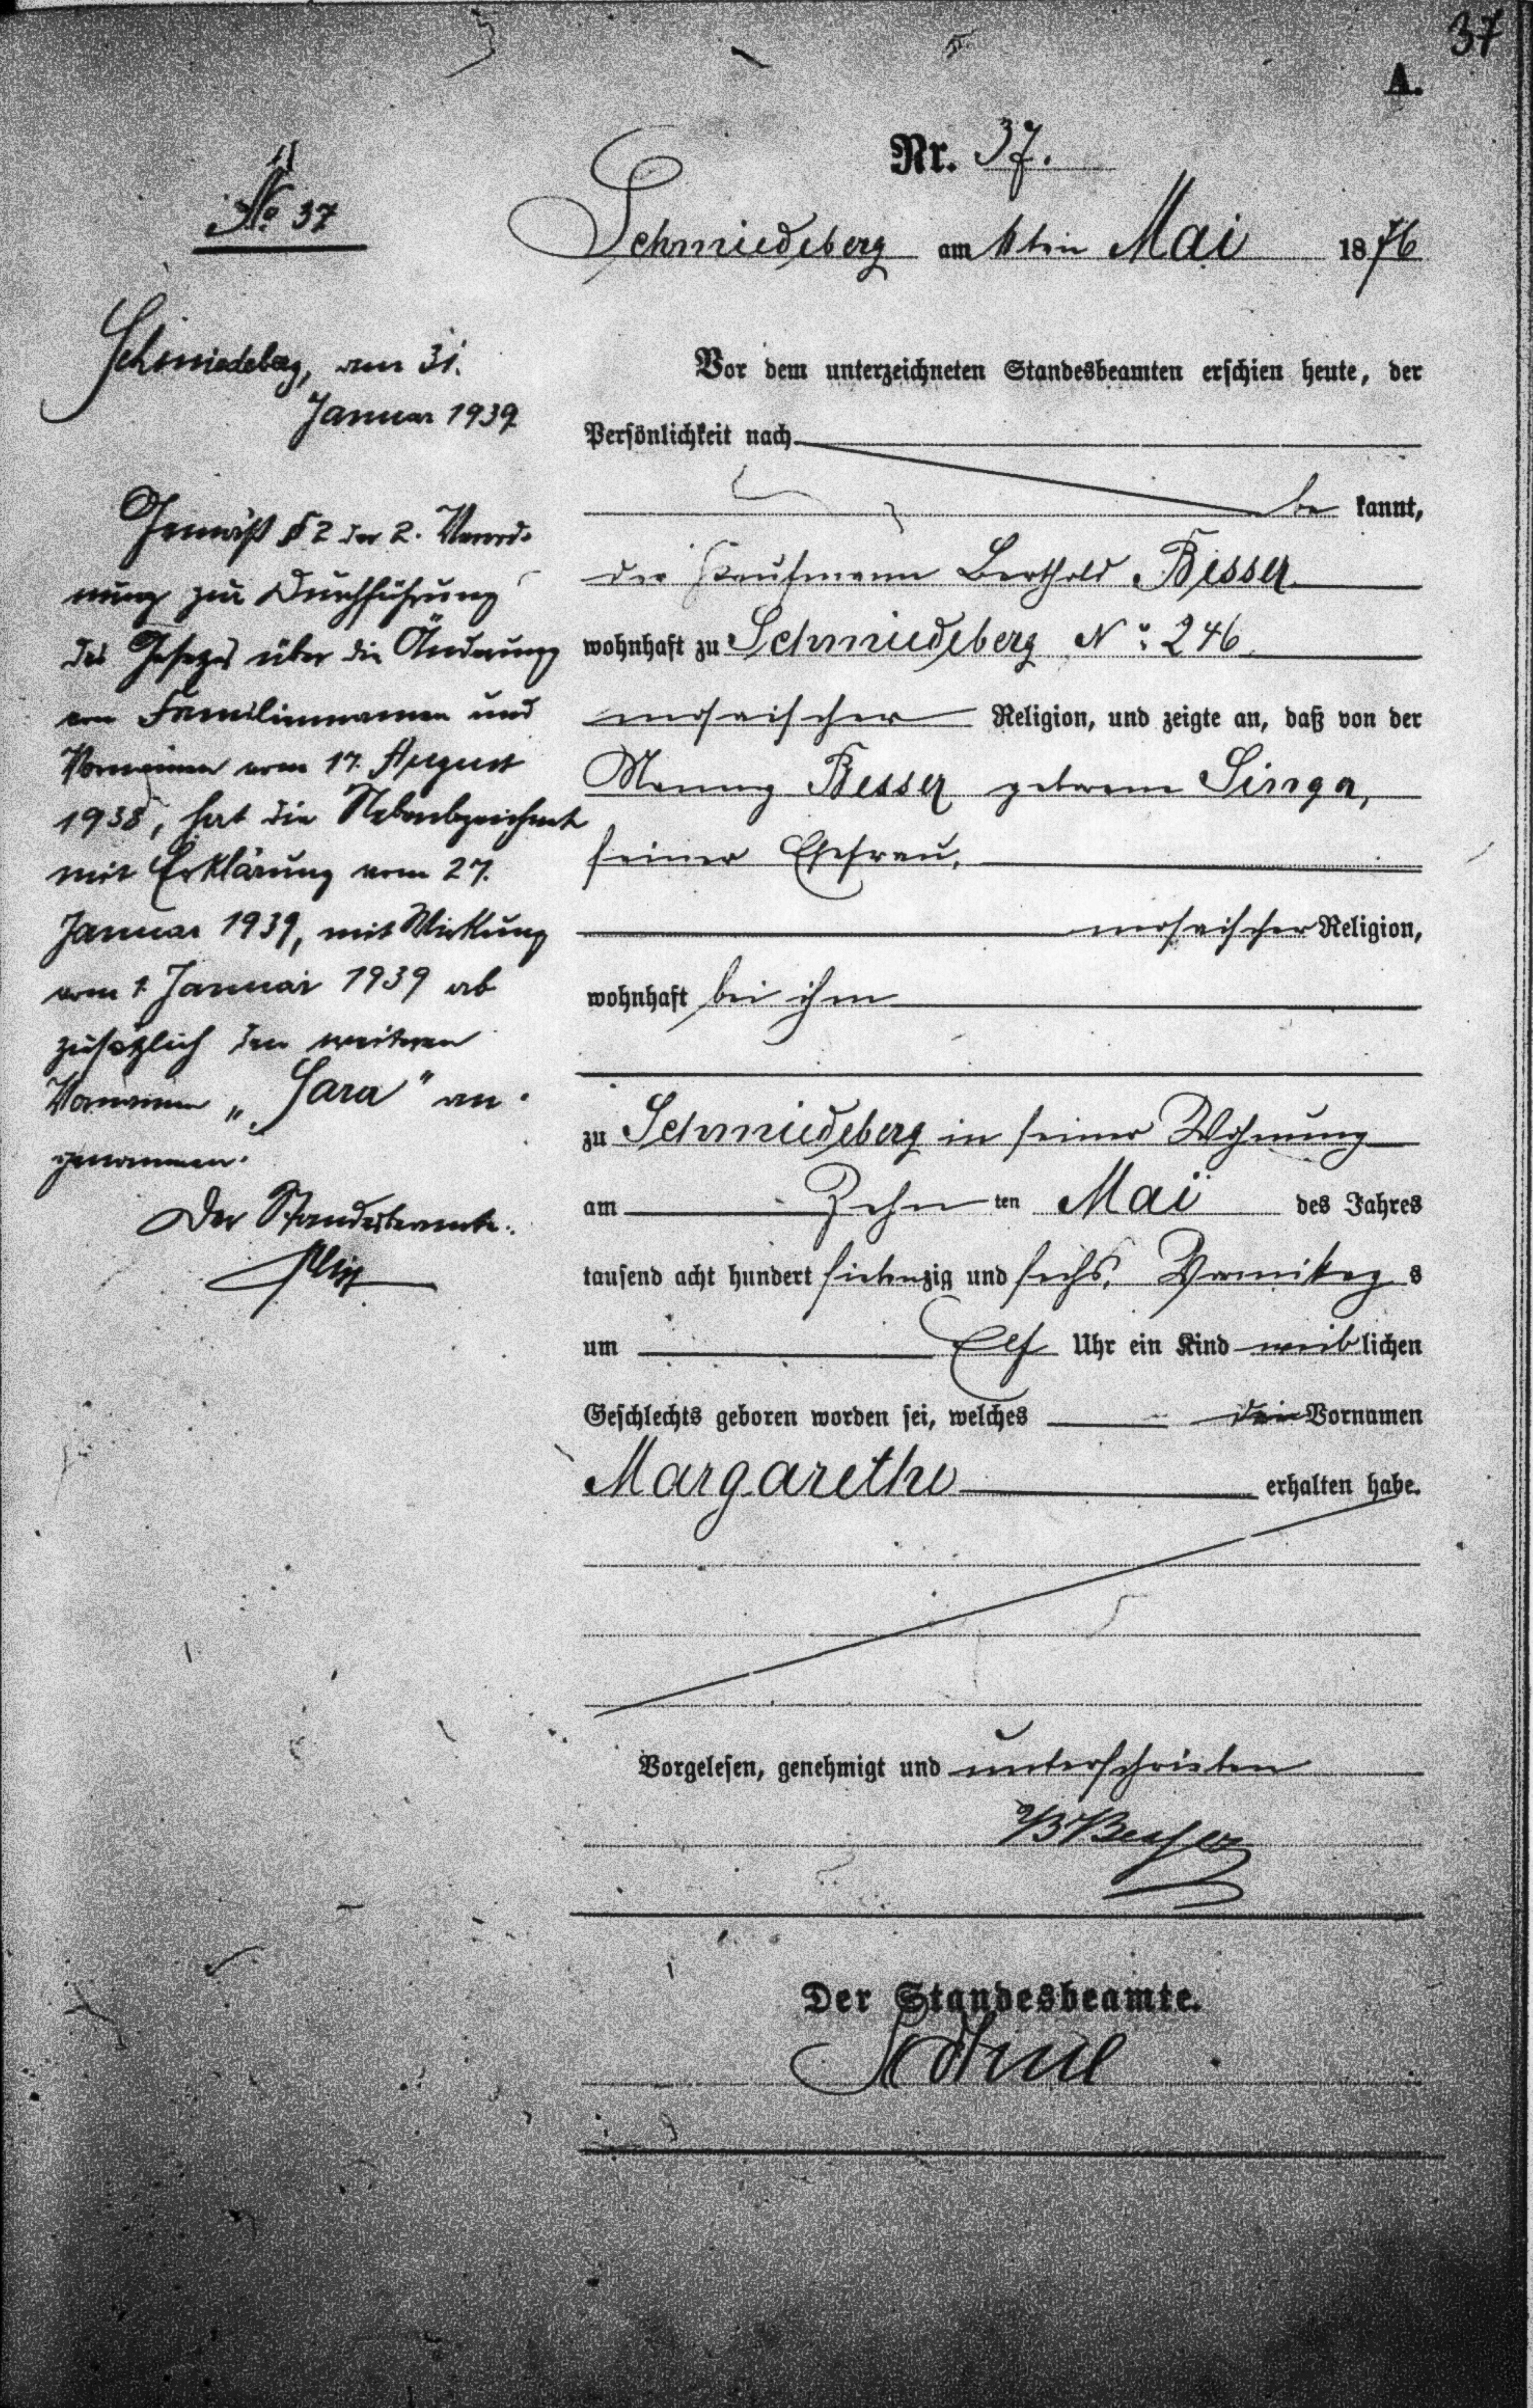 37
A.
Nr. 37.
Schmiedeberg am 11ten Mai 1876
Vor dem unterzeichneten Standesbeamten erschien heute, der
Persönlichkeit nach
be kannt,
der Kaufmann Berthold Besser
wohnhaft zu Schmiedeberg No: 246
mosaischer Religion, und zeigte an, daß von der
Besser geborene Singer,
seiner Ehefrau,
mosaischer Religion,
wohnhaft bei ihm
zu Schmiedeberg in seiner Wohnung
am Zehn ten Mai des Jahres
tausend acht hundert siebenzig und sechs, Vormittag s
um Elf Uhr ein Kind weib lichen
Geschlechts geboren worden sei, welches den Vornamen
Margarethe erhalten habe.
Vorgelesen, genehmigt und unterschrieben
B Besser
Der Standesbeamte.
No. 37
Schmiedeberg, am 31.
Januar 1939
Gemäß § 2 der 2. Verord-
nung zur Durchführung
des Gesetzes über die Änderung
von Familiennamen und
Vornamen vom 17. August
1938, hat die Nebenbezeichnete
mit Erklärung vom 27.
Januar 1939, mit Wirkung
vom 1. Januar 1939 ab
zusätzlich den weiteren
Vornamen „Sara" an-
genommen.
Der Standesbeamte.